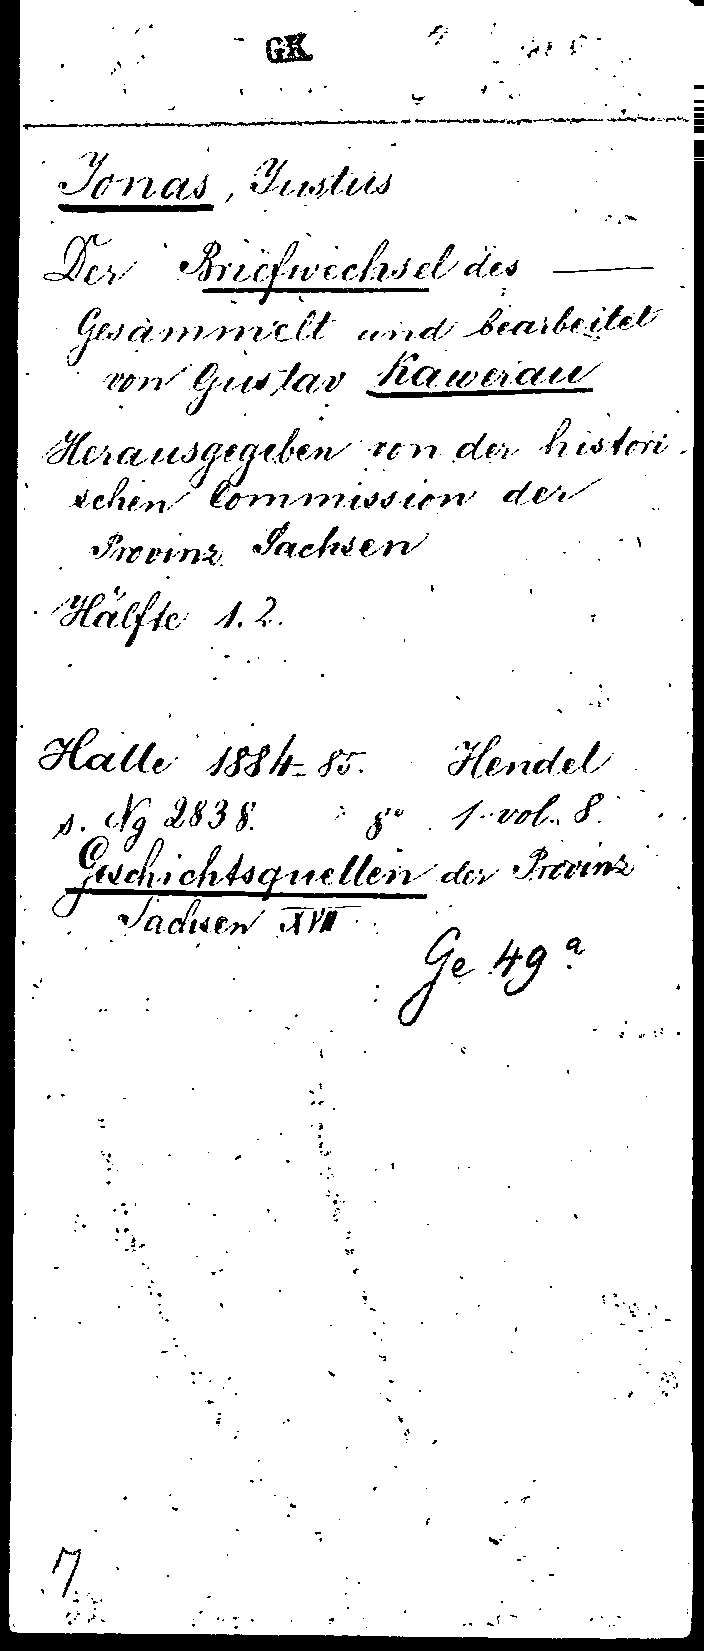 GK
Jonas, Justus
Der Briefwechsel des ——
Gesammelt und bearbeitet
von Gustav Kawerau
Herausgegeben von der histori-
schen Commission der
Provinz Sachsen
Hälfte 1. 2.
Halle 1884-85. Hendel
s. Ng 2838. 8° 1 vol. 8.
Geschichtsquellen der Provinz
Sachsen XVII
Ge 49 a.
7